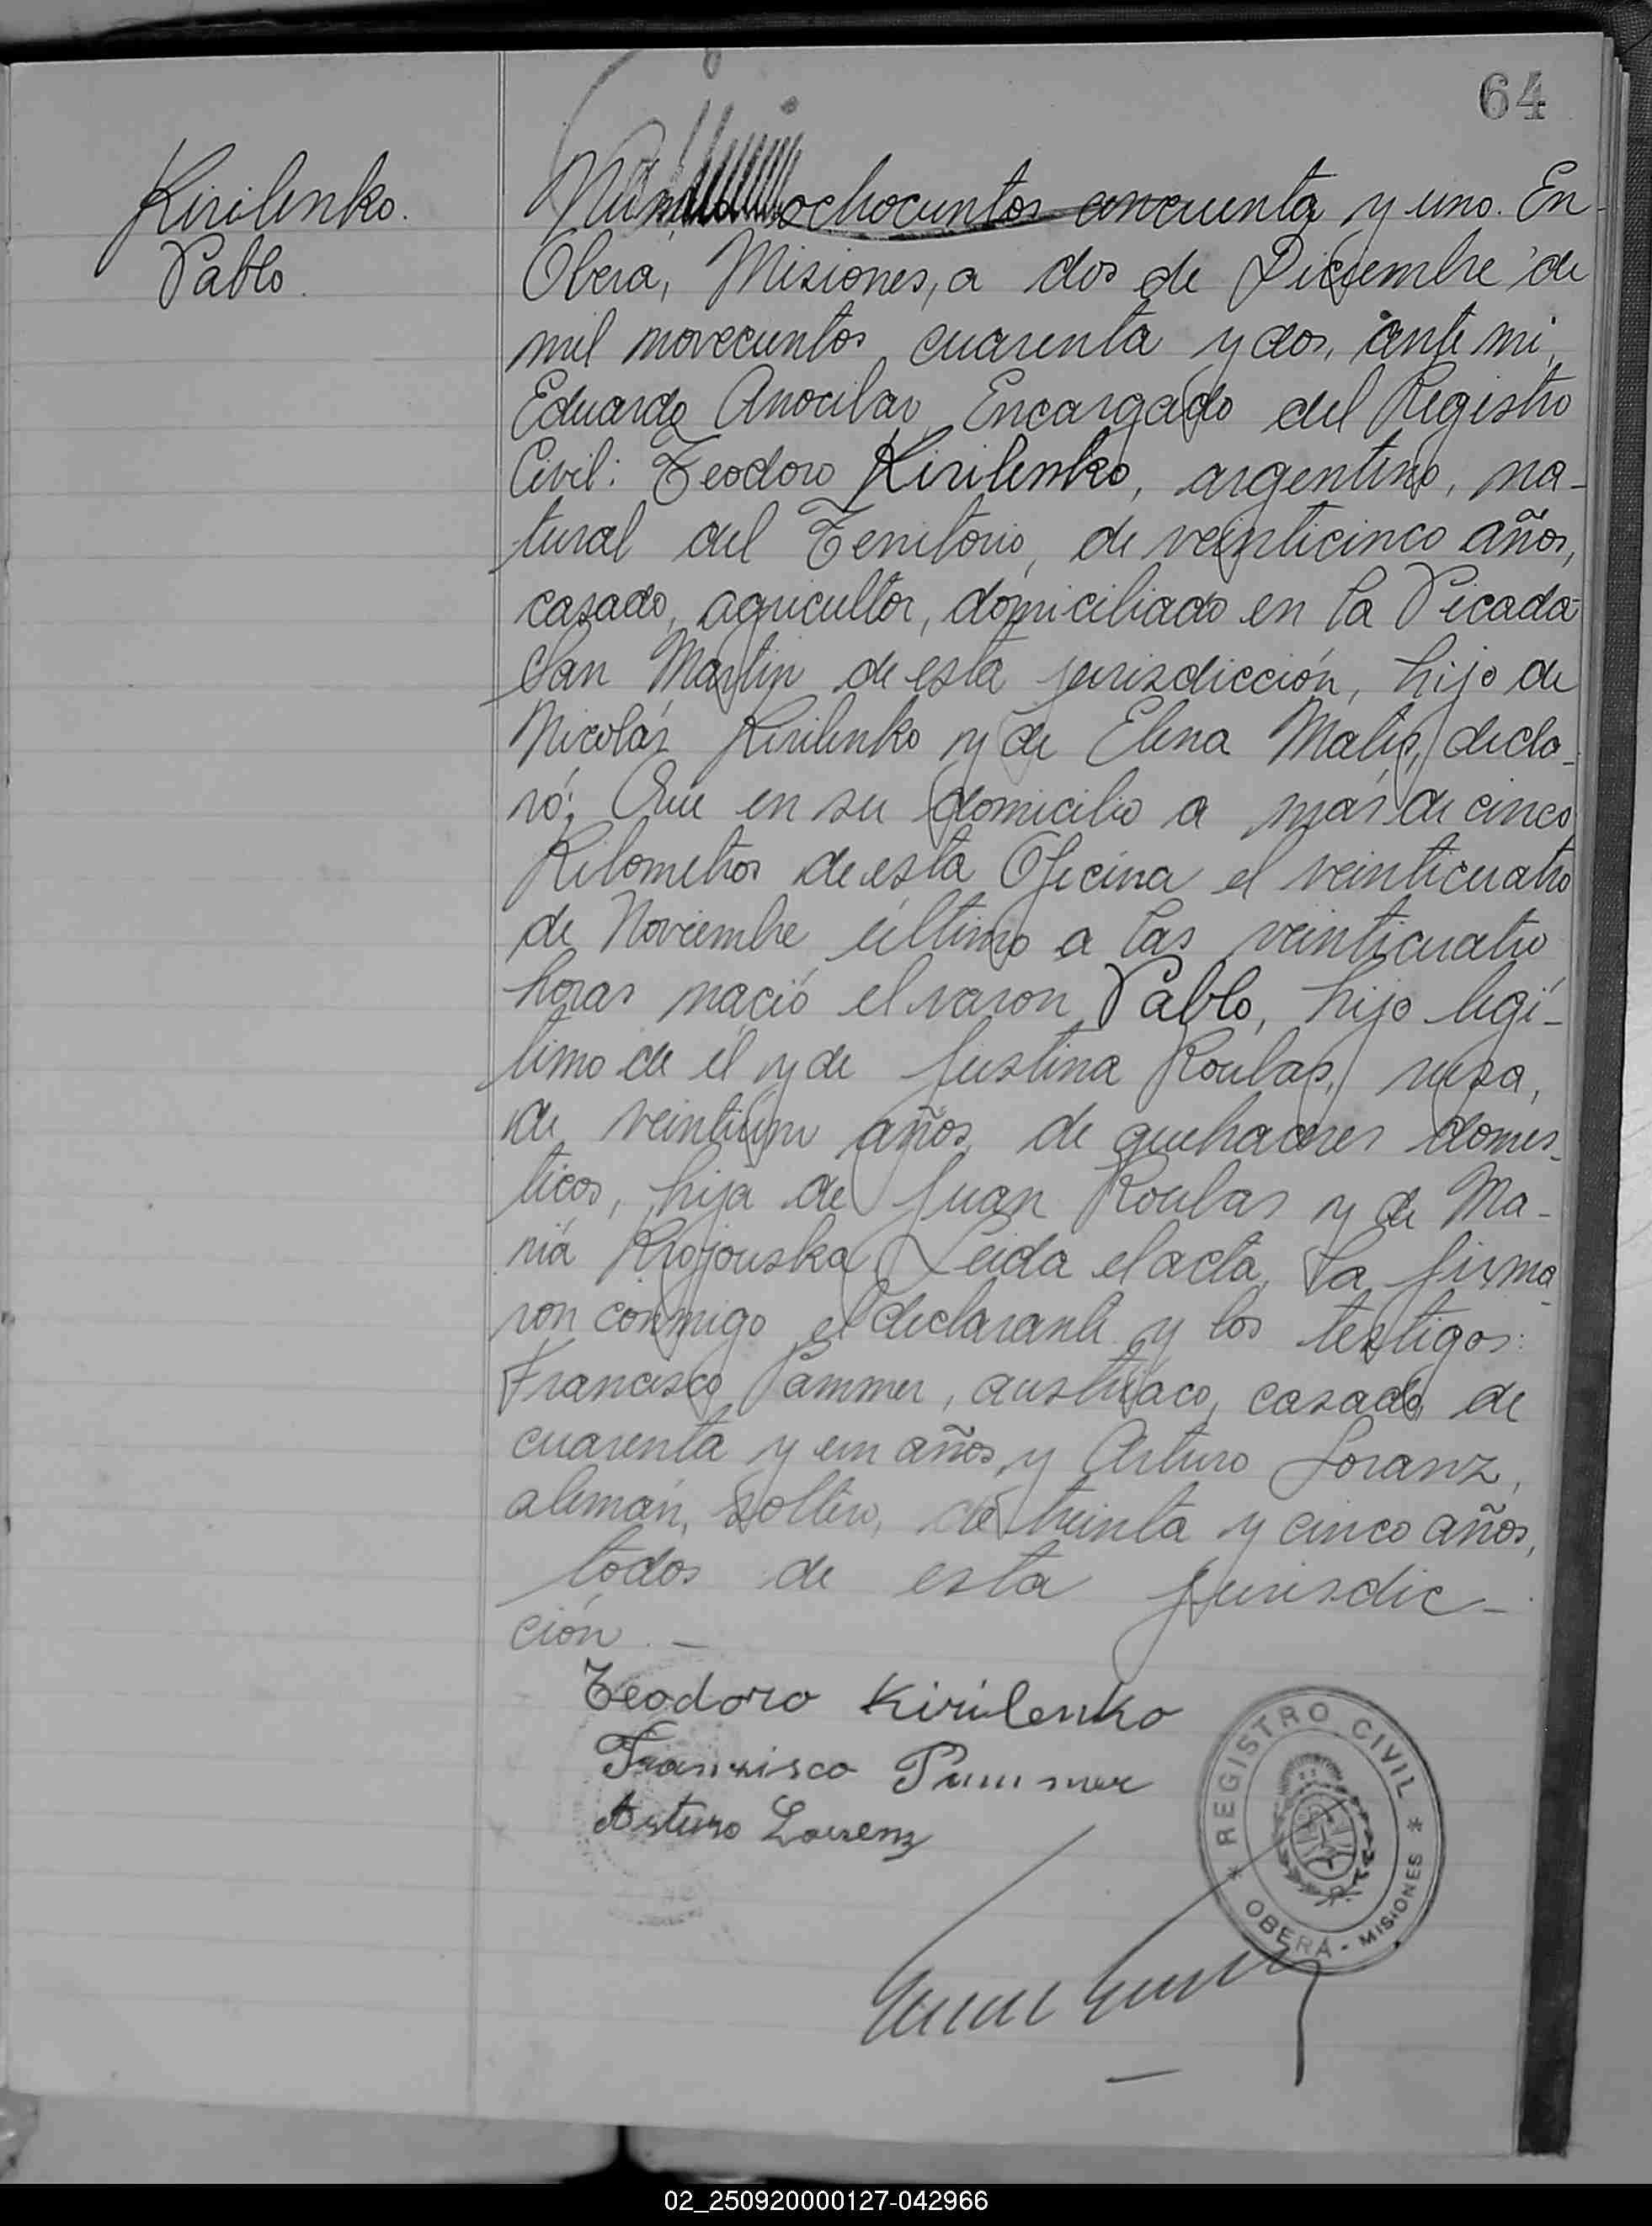 64
Kirilenko.
Pablo.
ochocientos cincuenta y uno. En
Oberá, Misiones, a dos de Diciembre de
mil novecientos cuarenta y dos, ante mi,
Eduardo Encargado del Registro
Civil: Teodoro Kirilenko, argentino, na-
tural del Territorio, de veinticinco años,
casado, agricultor, domiciliado en la Picada
San Martin de esta jurisdicción, hijo de
Nicolás Kirilenko y de Elena decla-
ró: Que en su domicilio a más de cinco
Kilometros de esta Oficina el veinticuatro
de Noviembre último a las veinticuatro
horas nació el varon Pablo, hijo legí-
timo de él y de Justina Roulas, rusa,
de veintiún años, de quehaceres domes-
ticos, hija de Juan Roulas y de Ma-
ría Leida el acta, la firma-
ron conmigo el declarante y los testigos:
Francisco Pammer, austriaco, casado, de
cuarenta y un años, y Arturo Loranz,
alemán, soltero, de treinta y cinco años,
todos de esta jurisdic-
ción. —
Teodoro Kirilenko
Francisco
Arturo Lorenz
REGISTRO CIVIL
* OBERÁ - MISIONES *
02_250920000127-042966